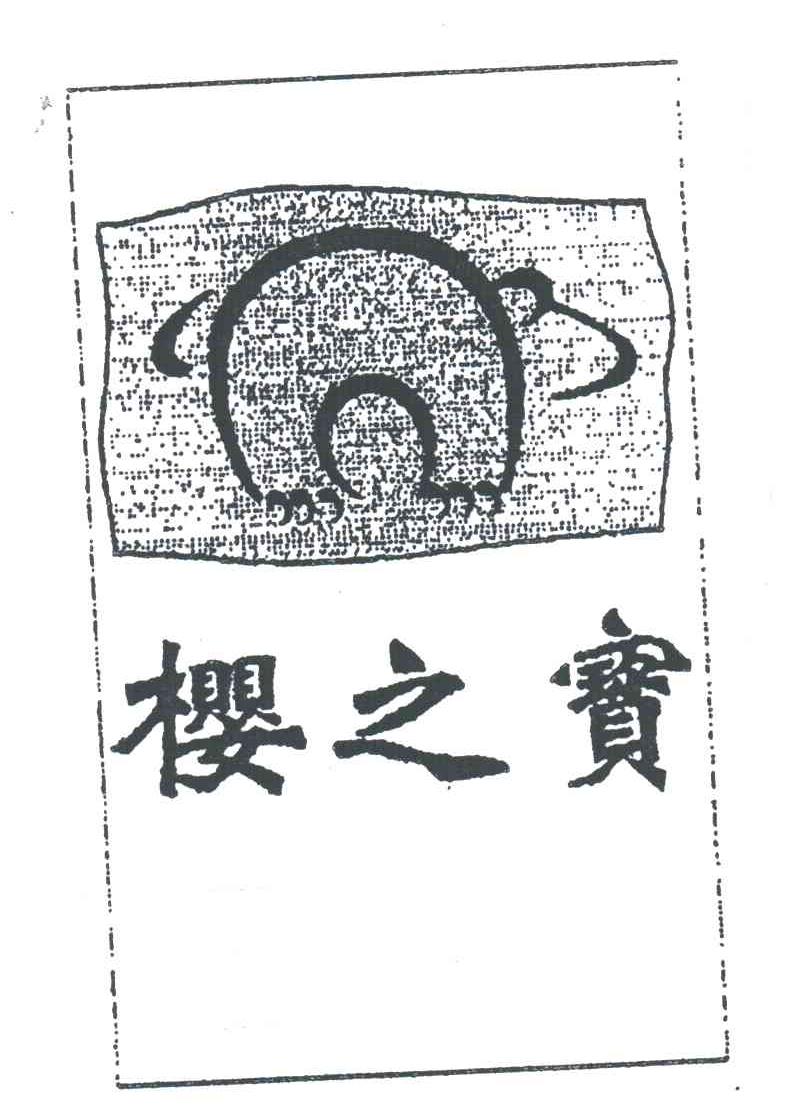 櫻之寶